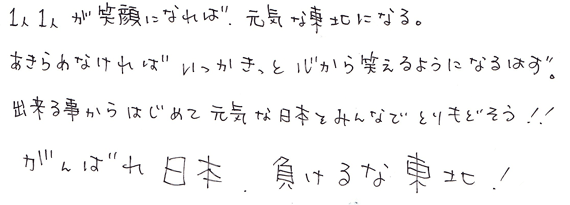 1人1人が笑顔になれば、元気な東北になる。
あきらめなければいつかきっと心から笑えるようになるはず。
出来る事からはじめて元気な日本をみんなでとりもどそう!!
がんばれ日本、負けるな東北!